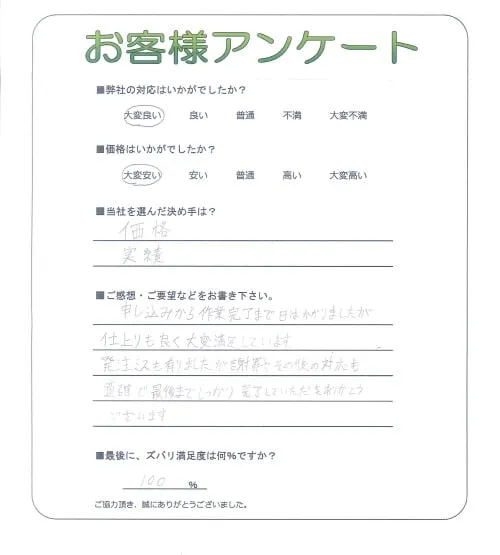 お客様アンケート
■弊社の対応はいかがでしたか？
大変良い 良い 普通 不満 大変不満
■価格はいかがでしたか？
大変安い 安い 普通 高い 大変高い
■当社を選んだ決め手は？
価格
実績
■ご感想・ご要望などをお書き下さい。
申し込みから作業完了まで日はかかりましたが
仕上りも良く大変満足しています
発注ミスも有りましたが謝罪とその後の対応も
で最後までしっかり完了していただきありがとう
ございます
■最後に、ズバリ満足度は何％ですか？
100 ％
ご協力頂き、誠にありがとうございました。